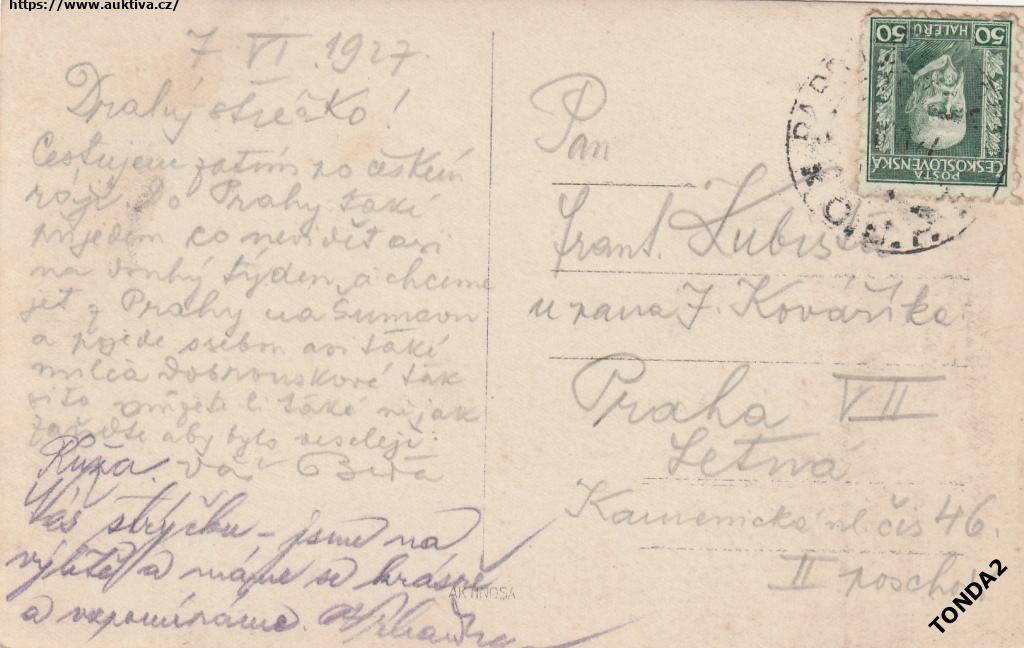 https://www.auktiva.cz/
7 VI. 1927.
Drahý strečko!
Cestujem zatím po českém
ráji. Do Prahy také
přijedem co nevidět asi
na druhý týden, a chceme
jet z Prahy na Šumavu
a pojede s sebou asi také
milča Dobrouskové tak
si to můžete li také nijak
zařiďte aby bylo veseleji.
Růža. Váš
Váš strýčku – jsme na
výletě a máme se krásně
a vzpomínáme.
AKTINOSA
Pan
Frant. Kubista
u pana J. Kovaříka.
Praha VII
Letná
Kamenická ul. čís 46.
II poschodí
50 HALÉŘŮ 50
POSTA
ČESKOSLOVENSKÁ
TONDA2